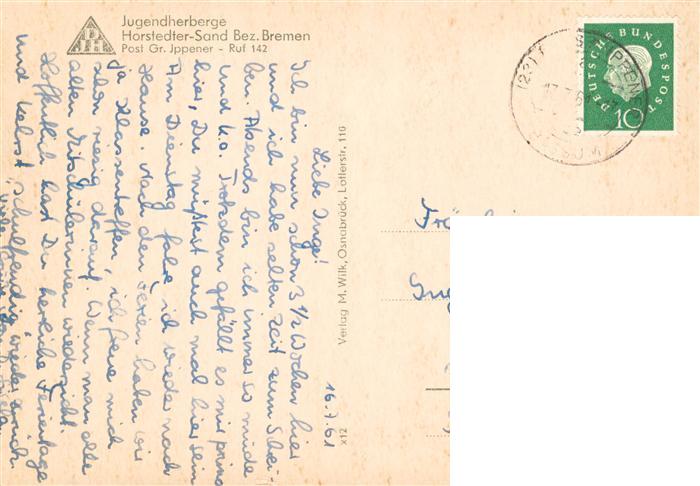 Jugendherberge
Horstedter-Sand Bez. Bremen
Post Gr. Jppener - Ruf 142
16.7.61
Liebe Inge!
Ich bin nun schon 3 1/2 Wochen hier
und ich habe selten Zeit zum Schrei-
ben. Abends bin ich immer so müde
und k.o. Trotzdem gefällt es mir prima
hier, Du müßtest auch mal hier sein
Am Dienstag fahre ich wieder nach
Hause. Nach den Ferien haben wir
ja Klassentreffen, ich freue mich
schon riesig darauf. Wenn man alle
alten Mitschülerinnen wiedersieht.
Hoffentlich hast Du herrliche Ferientage
und kehrst "schulfreudig" wieder zurück.
Verlag M. Wilk, Osnabrück, Lotterstr. 116
x12
DEUTSCHE BUNDESPOST
10
(23)
BREMEN
Frl